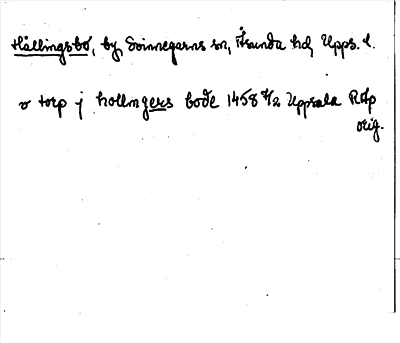 Hållingsbo, by, Svinnegarns sn, Åsunda hd, Upps. l.
v torp j hollingers bode 1458 4/2 Uppsala RAp
orig.